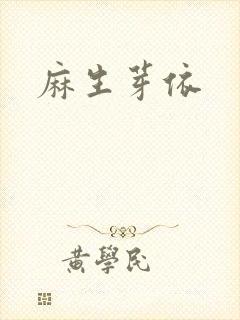 麻生芽依
黄學民